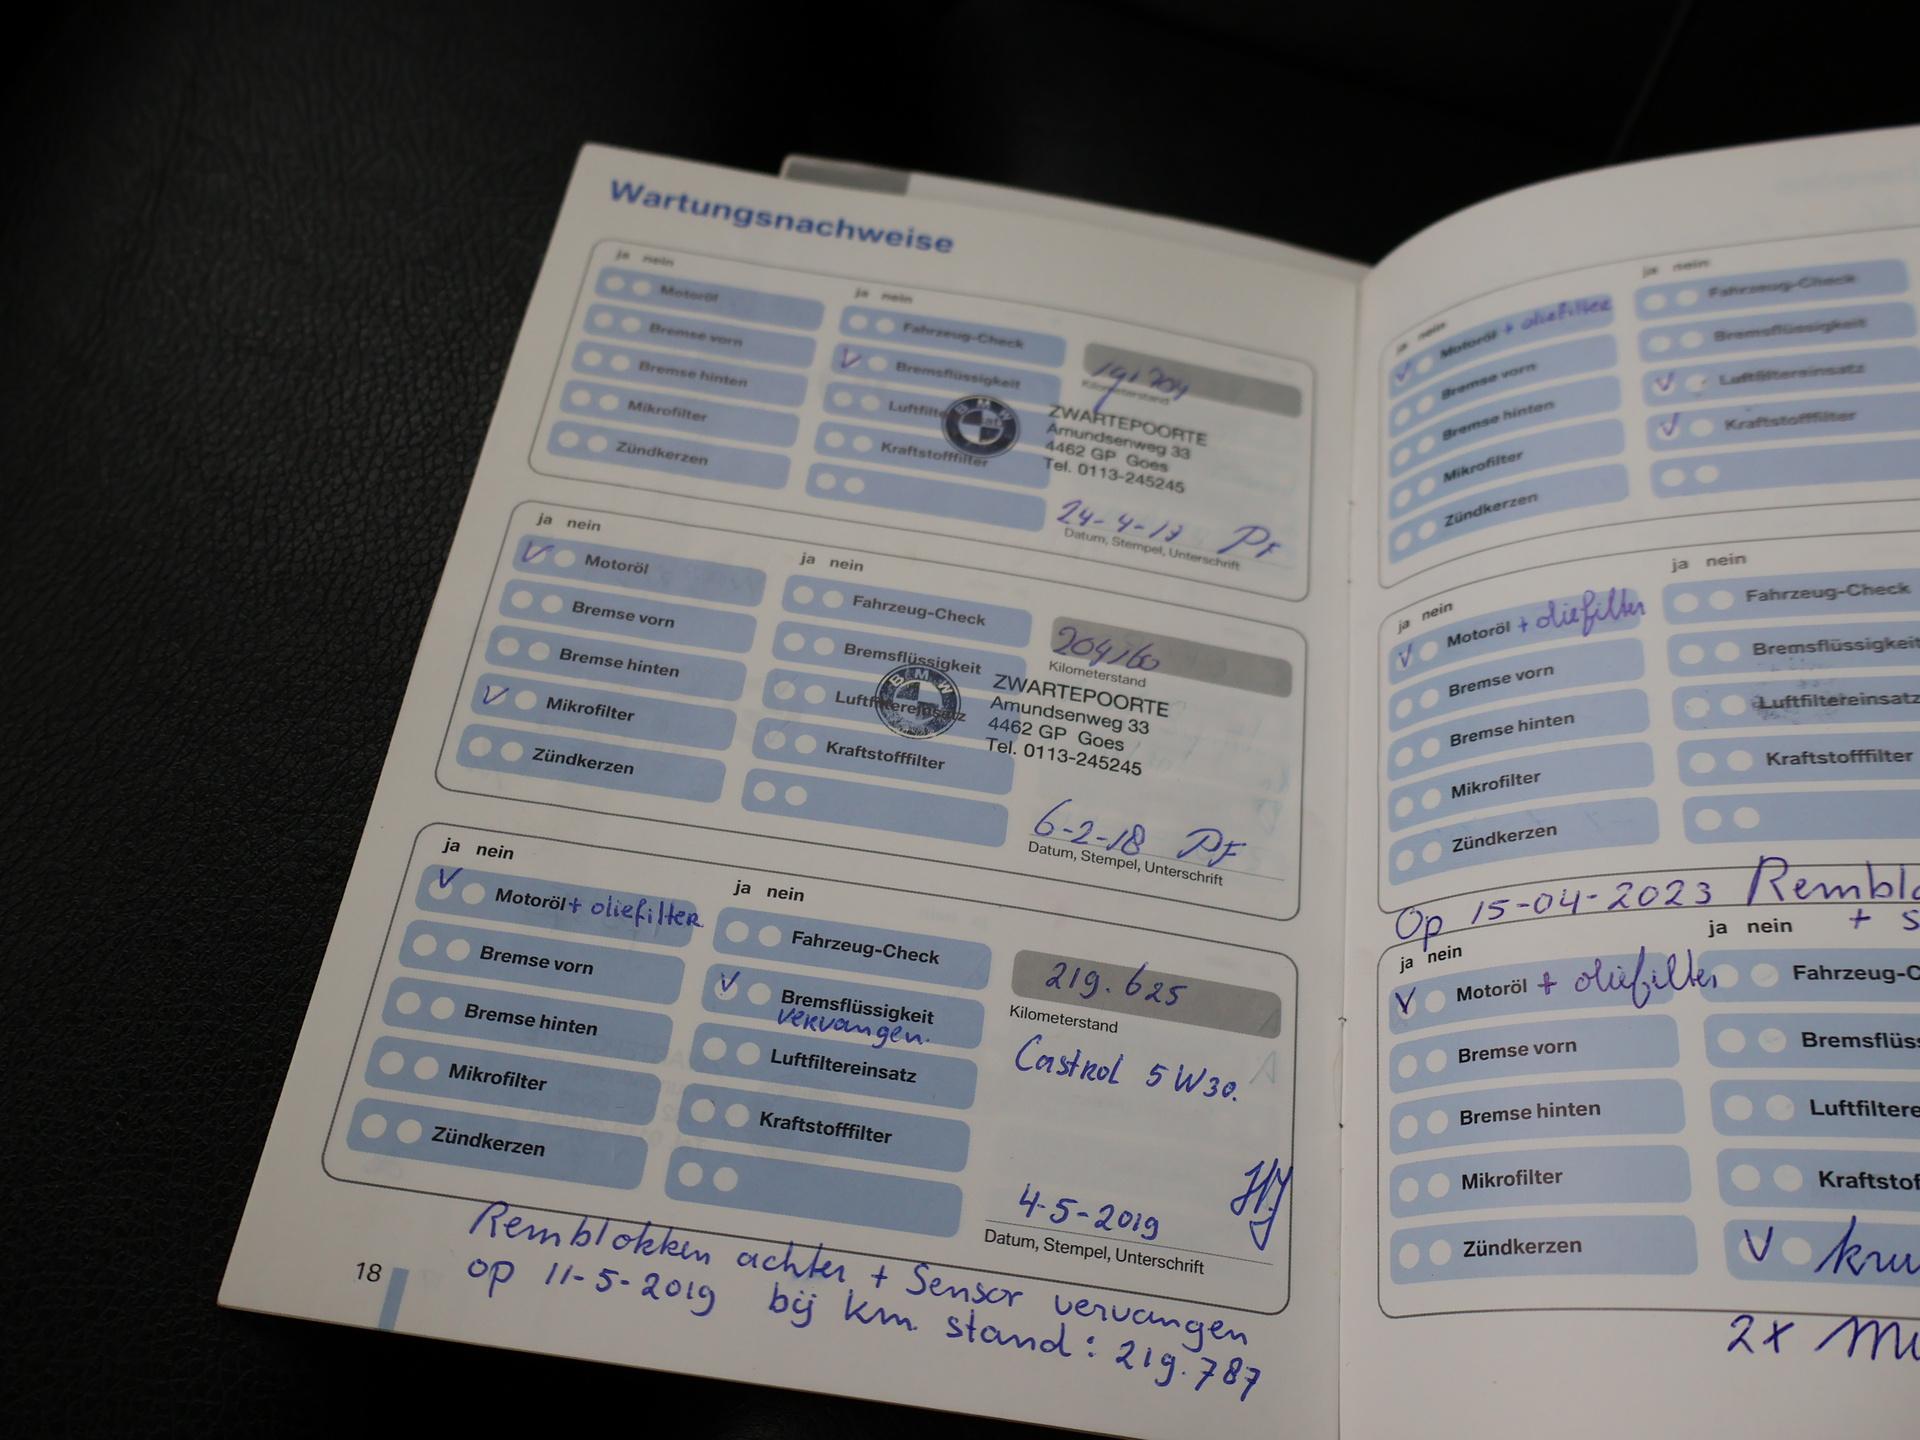 Wartungsnachweise
ja nein
Motoröl
Bremse vorn
Bremse hinten
Mikrofilter
Zündkerzen
ja nein
Fahrzeug-Check
Bremsflüssigkeit
Kraftstofffilter
Kilometerstand
BMW
ZWARTEPOORTE
Amundsenweg 33
4462 GP Goes
Tel. 0113-245245
24-4-17 PF
Datum, Stempel, Unterschrift
ja nein
Motoröl
Bremse vorn
Bremse hinten
Mikrofilter
Zündkerzen
ja nein
Fahrzeug-Check
Bremsflüssigkeit
Luftfiltereinsatz
Kraftstofffilter
204160
Kilometerstand
BMW
ZWARTEPOORTE
Amundsenweg 33
4462 GP Goes
Tel. 0113-245245
6-2-18 PF
Datum, Stempel, Unterschrift
ja nein
Motoröl + oliefilter
Bremse vorn
Bremse hinten
Mikrofilter
Zündkerzen
ja nein
Fahrzeug-Check
Bremsflüssigkeit
vervangen.
Luftfiltereinsatz
Kraftstofffilter
219.625
Kilometerstand
Castrol 5W30.
4-5-2019 HJ
Datum, Stempel, Unterschrift
Remblokken achter + Sensor vervangen
op 11-5-2019 bij km. stand: 219.787
18
ja nein
Motoröl + oliefilter
Bremse vorn
Bremse hinten
Mikrofilter
Zündkerzen
ja nein
Fahrzeug-Check
Bremsflüssigkeit
Luftfiltereinsatz
Kraftstofffilter
ja nein
Motoröl + oliefilter
Bremse vorn
Bremse hinten
Mikrofilter
Zündkerzen
ja nein
Fahrzeug-Check
Bremsflüssigkeit
Luftfiltereinsatz
Kraftstofffilter
Op 15-04-2023 Rembl
+ s
ja nein
Motoröl + oliefilter
Bremse vorn
Bremse hinten
Mikrofilter
Zündkerzen
ja nein
Fahrzeug-C
Bremsflüss
Luftfiltere
Kraftstof
2x